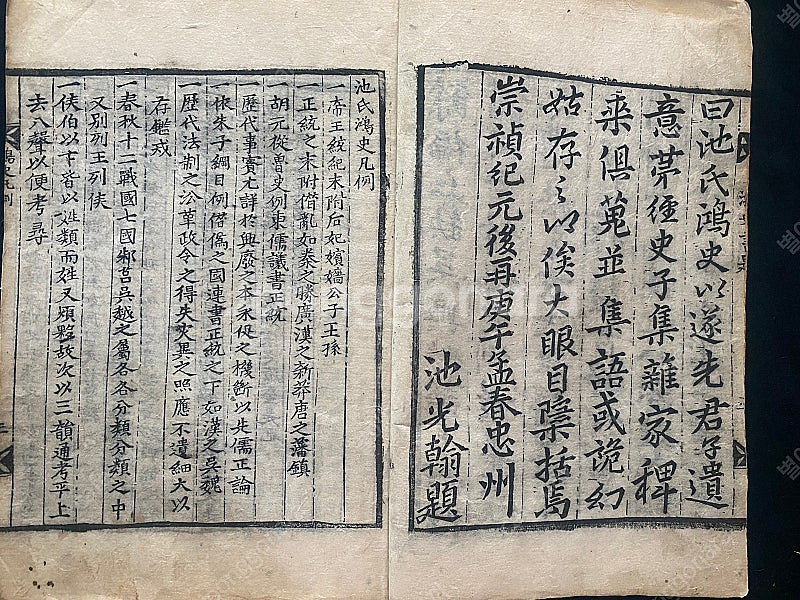 曰池氏鴻史以遂先君子遺
意第經史子集雜家稗
乗俱蒐並集語或詭幻
姑存之以俟大眼目櫽括焉
崇禎紀元後再庚午孟春忠州
池光翰題
池氏鴻史凡例
一帝王統紀末附后妃嬪嬙公子王孫
一正統之末附僭亂如秦之勝廣漢之新莽唐之藩鎮
一胡元從魯史例東儒議書正統
一歷代事實尤詳於興廢之本永促之機斷以先儒正論
一依朱子綱目例僭僞之國連書正統之下如漢之吳魏
一歷代法制之沿革政令之得失災異之照應不遺細大以
存鑑戒
一春秋十二戰國七國邾莒吳越之屬各各分類分類之中
又別列王列侯
一侯伯以下皆以姓類而姓又煩夥故次以三韻通考平上
去入聲以便考尋